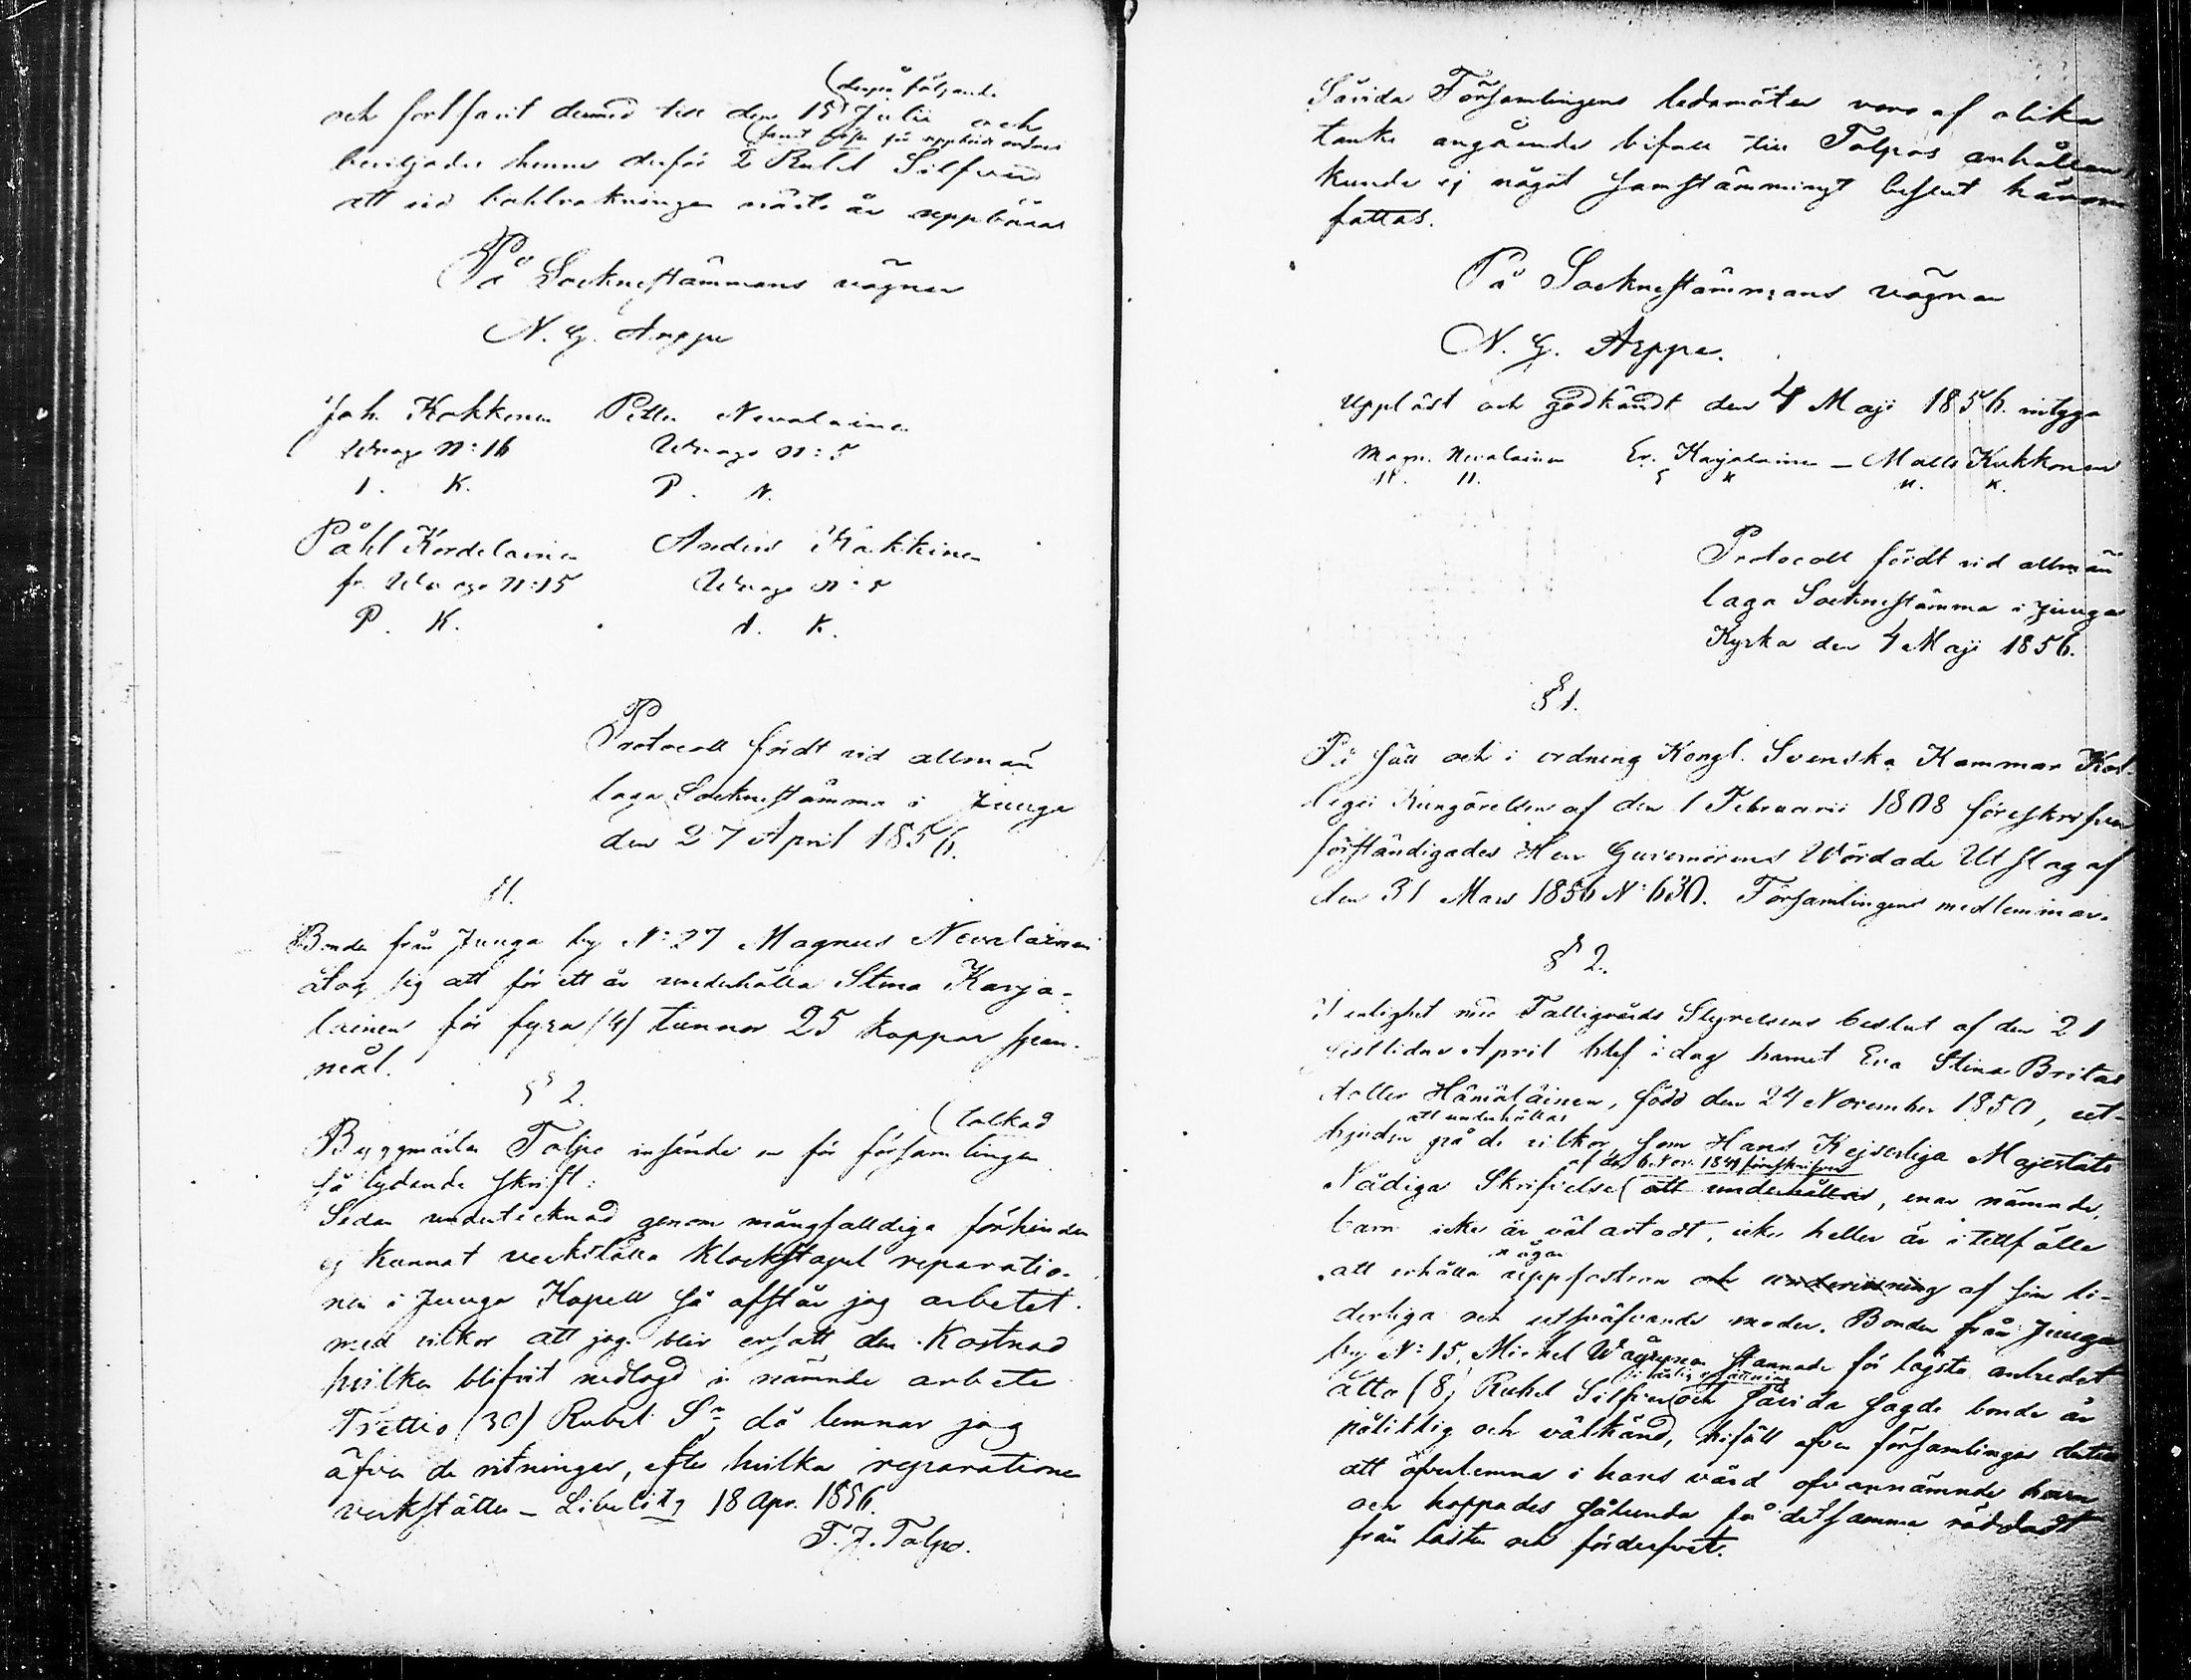 (derpå följande
och fortfarit dermed till den 15 Julii och
beviljades henne derför 2 Rubel Silfver
att vid boklrakningen nästa år uppbäras
På Socknestämmans vägnar
N. G. Arppe
Joh. Kokkonen Petter Nevalainen
Wrago N:16 Wrago N:5
I. K. P. N.
Påhl Kordelainen Anders Kakkinen
fr. Wrago N:15 Wrago N:5
P. K. A. K.
Protocoll fördt vid allmän
laga Socknestämma i Juuga
den 27 April 1856.
§1.
Bonden från Juuga by N:27 Magnus Nevalainen
åtog sig att för ett år underhålla Stina Karja-
lainen för fyra (4) tunnor 25 kappar span-
mål.
§ 2.
(talkad
Byggmästar Talpo insände en för församlingen
så lydande skrift:
Sedan undertecknad genom mångfalldiga förhinder
ej kunnat verkställa klockstapel reparatio-
nen i Juuga Kapell så afstår jag arbetet
med vilkor att jag blir ersatt den kostnad
hvilken blifvit nedlagd i nämnde arbete
Trettio (30) Rubel Sr. då lemnar jag
äfven de ritningar, efter hvilka reparationen
verkställes – Libelitz 18 Apr. 1856.
T. J. Talpo.
Såvida Församlingens ledamöter voro af olika
tanke angående bifall till Talpos anhållan
kunde ej något samstämmigt beslut härom
fattas.
På Socknestämmans vägnar
N. G. Arppe.
Uppläst och godkändt den 4 Maji 1856. intyga
Magn. Nevalainen Er. Karjalainen – Matts Kukkonen
M. N. E K M. K.
Protocoll fördt vid allmän
laga Socknestämma i Juuga
Kyrka den 4 Maji 1856.
§ 1.
På sätt och i ordning Kongl. Svenska Kammar Kol-
legii Kungörelsen af den 1 Februarii 1808 föreskrifver
förständigades Herr Guvernörens Wördade Utslag af
den 31 Mars 1856 N:630. Församlingens medlemmar.
§ 2.
I enlighet med Fattigvårds Styrelsens beslut af den 21
sistlidne April blef i dag barnet Eva Stina Britas
dotter Hämäläinen, född den 24 November 1850, ut-
att underhållas
bjuden på de vilkor som Hans Kejserliga Majestäts
af den 6 Nov. 1849 föreskrifver
Nådiga Skrifvelse att underhållas, enär nämnde
barn icke är väl artadt, icke heller är i tillfälle
någon
att erhålla uppfostran och undervisning af sin li-
derliga och utsväfvande moder. Bonden från Juuga
by N:15, Michel Wäyrynen stannade för lägsta anbudet
åtta (8) Rubel Silfver och såvida sagde bonde är
pålitlig och välkänd, biföll äfven församlingen
att öfverlemna i hans vård ofvannämnde barn
och hoppades sålunda få detsamma räddadt
från lasten och förderfvet.